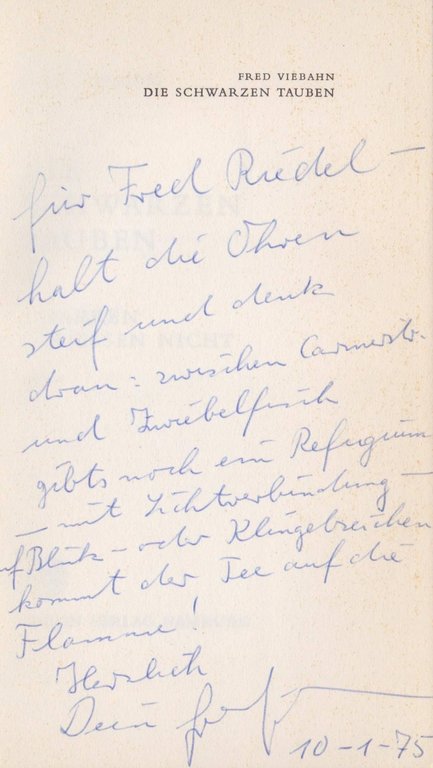 FRED VIEBAHN
DIE SCHWARZEN TAUBEN
für Fred Riedel –
halt die Ohren
steif und denk
dran: zwischen Carmerstr.
und Zwiebelfisch
gibts noch ein Refugium
– mit Lichtverbindung –
auf Blink- oder Klingelzeichen
kommt der Tee auf die
Flamme!
Herzlich
Dein
10-1-75